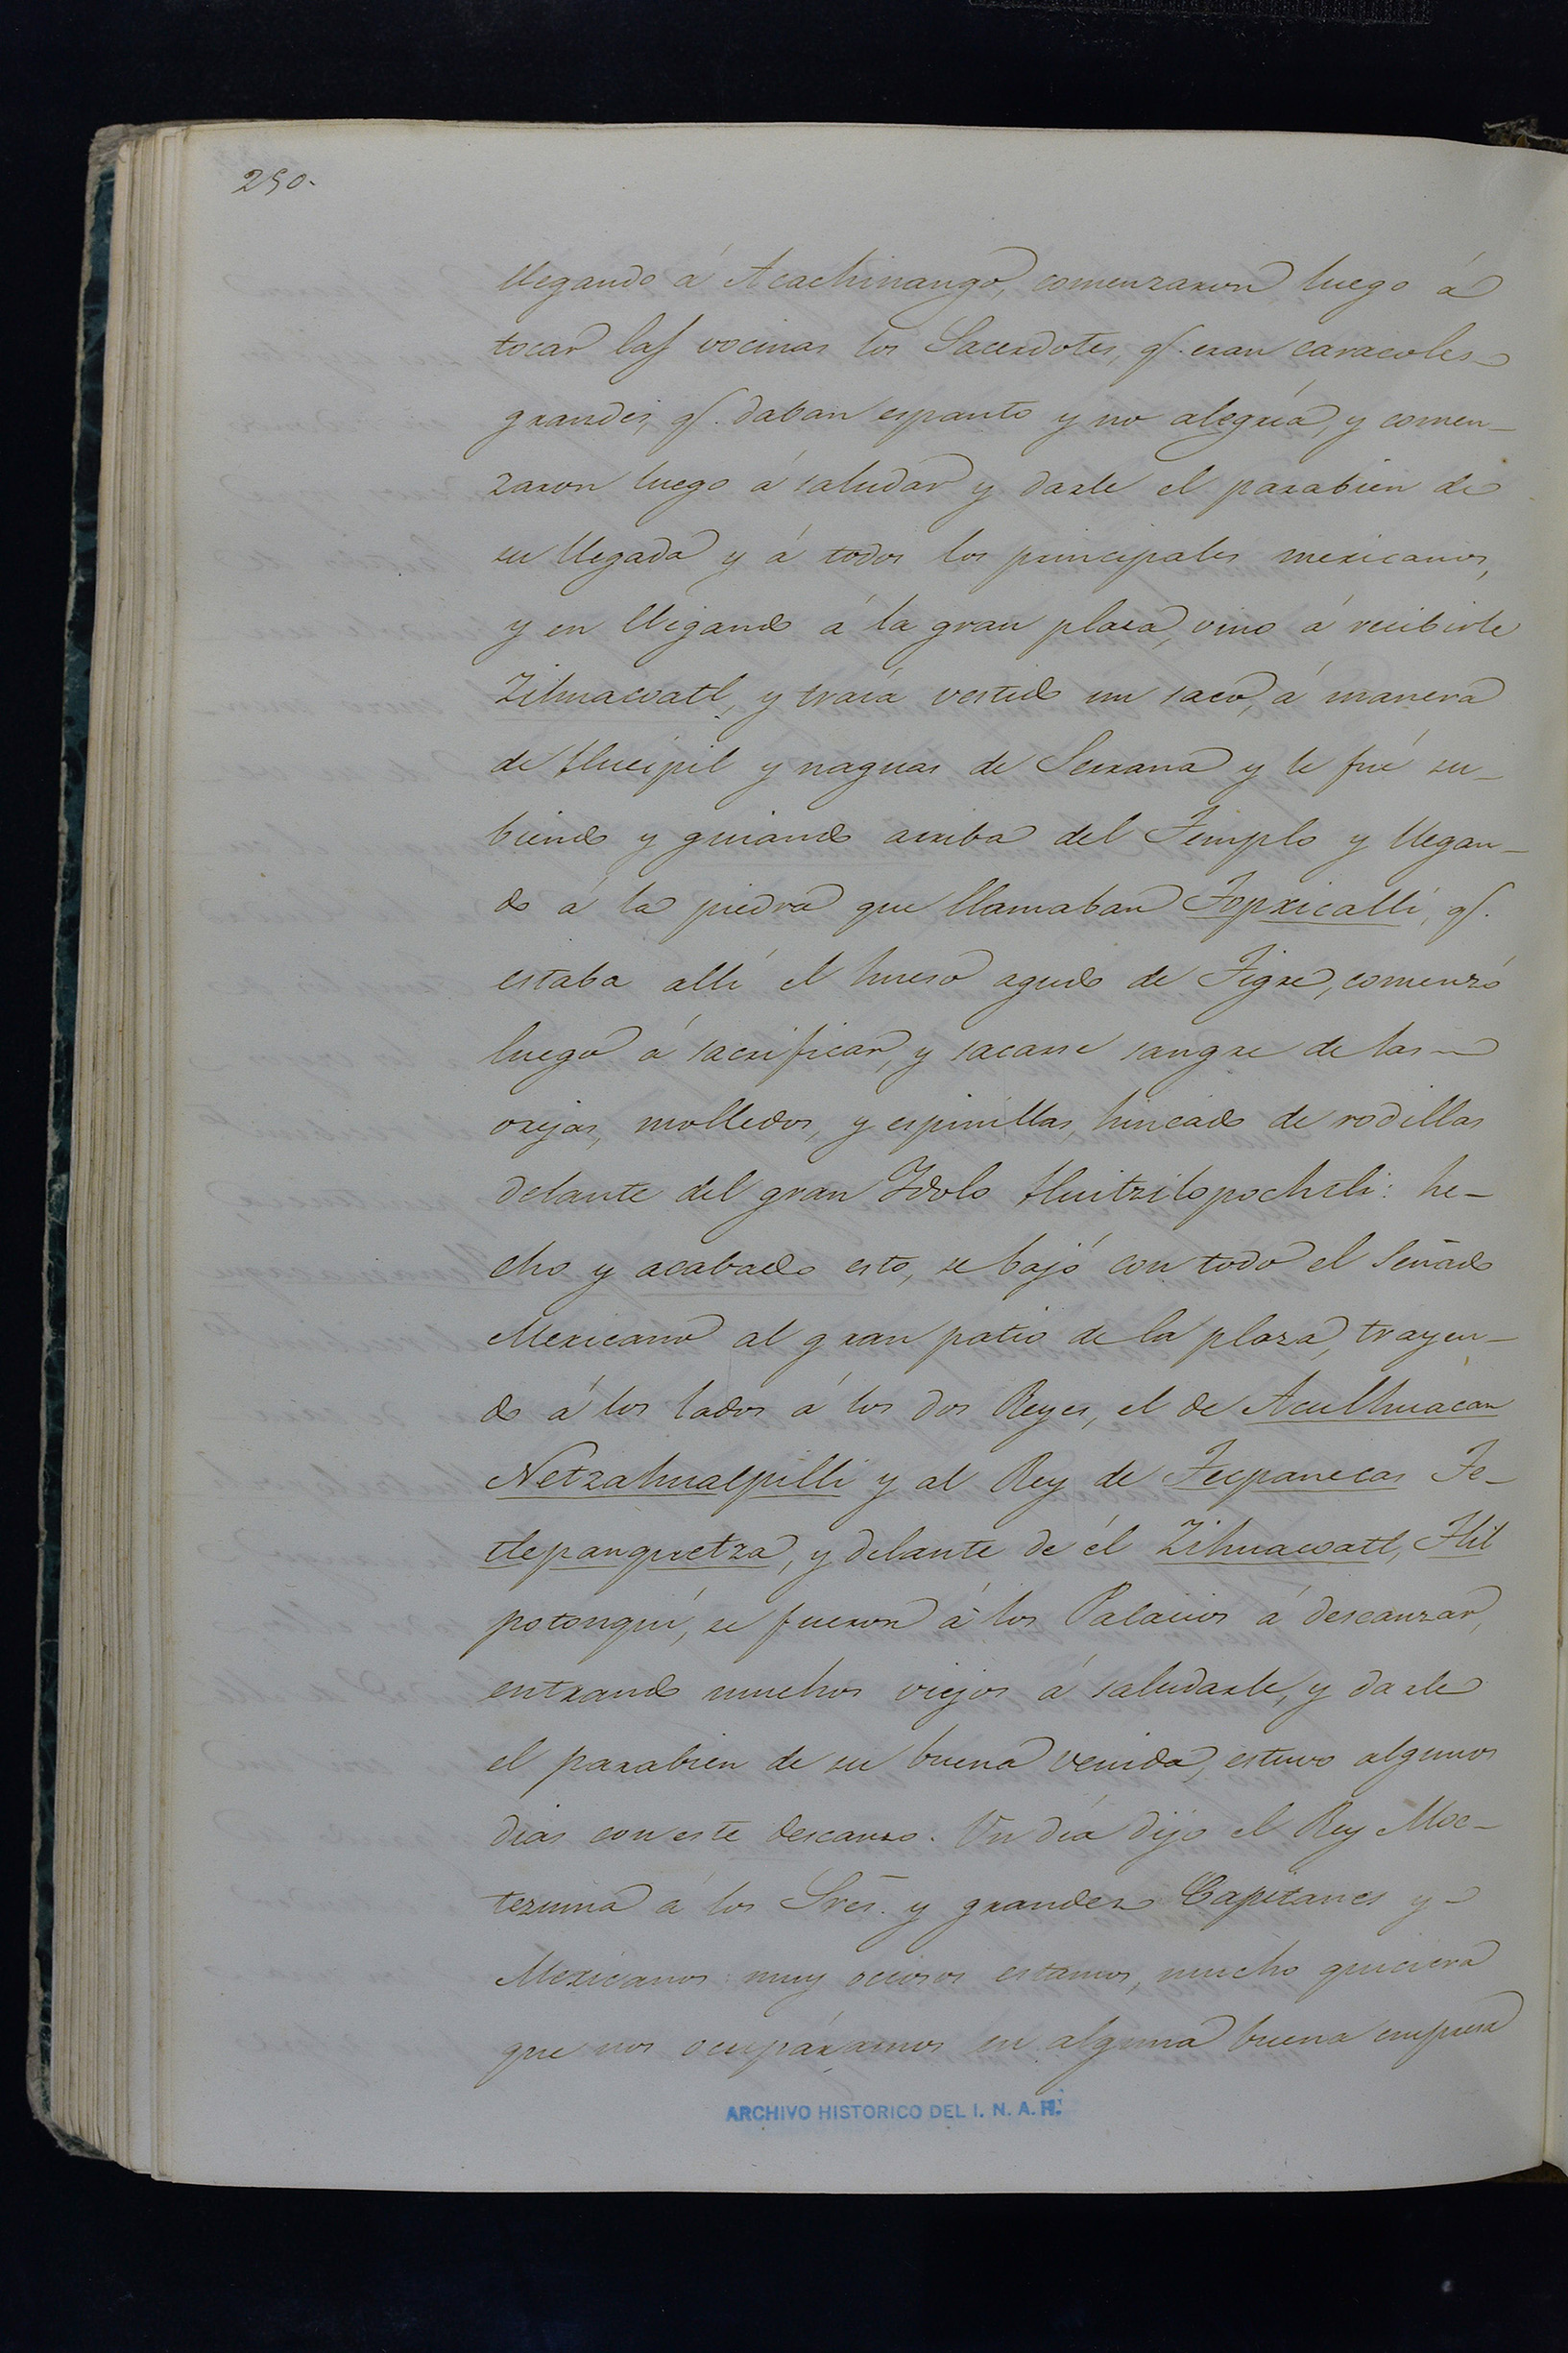 250.
llegando á Acachinango, comenzaron luego á
tocar las vocinas los Sacerdotes, q.e eran caracoles
grandes, q.e daban espanto y no alegría, y comen-
zaron luego á saludar y darle el parabien de
su llegada y á todos los principales mexicanos,
y en llegando á la gran plaza, vino á recibirle
Zihuacoatl, y traía vestido un saco, á manera
de Hueipil y naguas de Serrana y le fué su-
biendo y guiando arriba del Templo y llegan-
do á la piedra que llamaban Topxicalli, q.e
estaba allí el hueso agudo de Tigre, comenzó
luego á sacrificar, y sacarse sangre de las
orejas, molledos, y espinillas, hincado de rodillas
delante del gran Idolo Huitzilopochtli: he-
cho y acabado esto, se bajó con todo el Senado
Mexicano al gran patio de la plaza, trayen-
do á los lados á los dos Reyes, el de Aculhuacan
Netzahualpilli y al Rey de Tecpanecas Te-
tlepanquetza, y delante de él Zihuacoatl, Tlil
potonquí, se fueron á los Palacios á descanzar,
entrando muchos viejos á saludarle, y darle
el parabien de su buena venida, estuvo algunos
dias con este descanso. Un día dijo el Rey Moc-
tezuma á los Sres. y grandes Capitanes y
Mexicanos: muy ociosos estamos, mucho quiciera
que nos ocupáramos en alguna buena empresa
ARCHIVO HISTORICO DEL I. N. A. H.